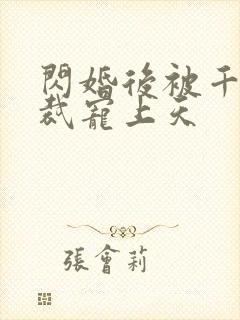 閃婚後被千
裁寵上天
張會莉